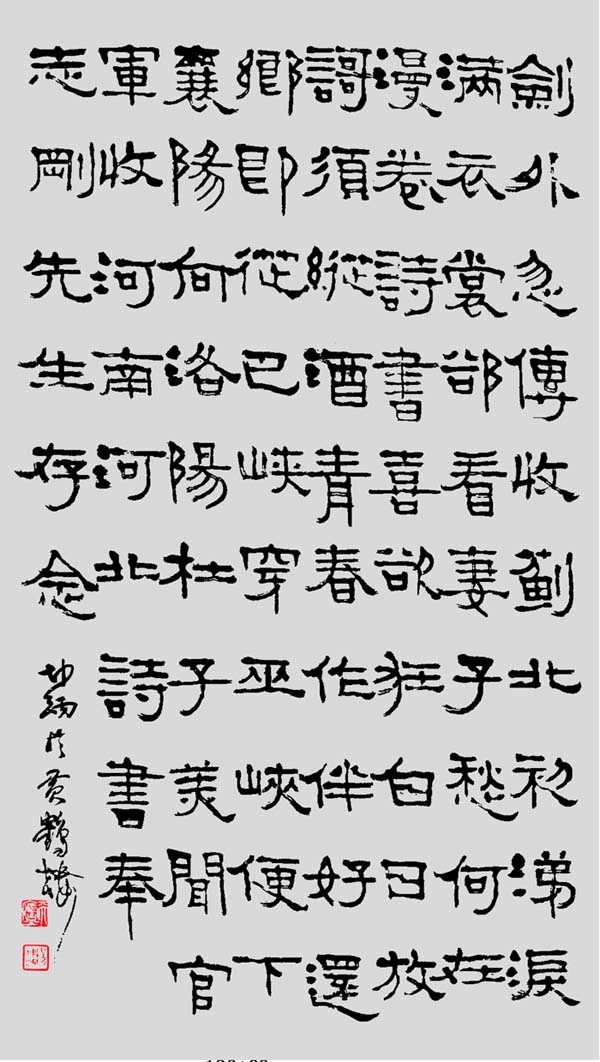 劍外忽傳收薊北初涕淚
滿衣裳郤看妻子愁何在
漫卷詩書喜欲狂白日放
謌須縱酒青春作伴好還
鄉即從巴峽穿巫峽便下
襄陽向洛陽杜子美聞官
軍收河南河北詩書奉
志剛先生存念
於黃鶴樓